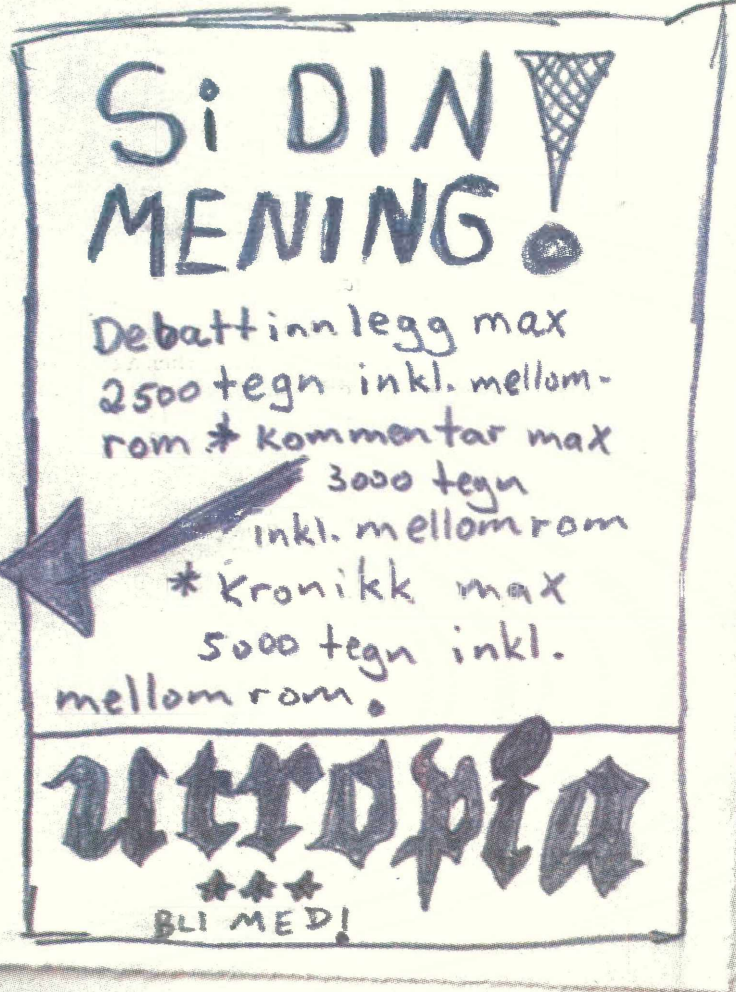 Si DIN
MENING!
Debattinnlegg max
2500 tegn inkl. mellom-
rom * kommentar max
3000 tegn
inkl. mellomrom
* Kronikk max
5000 tegn inkl.
mellomrom.
utropia
BLI MED!